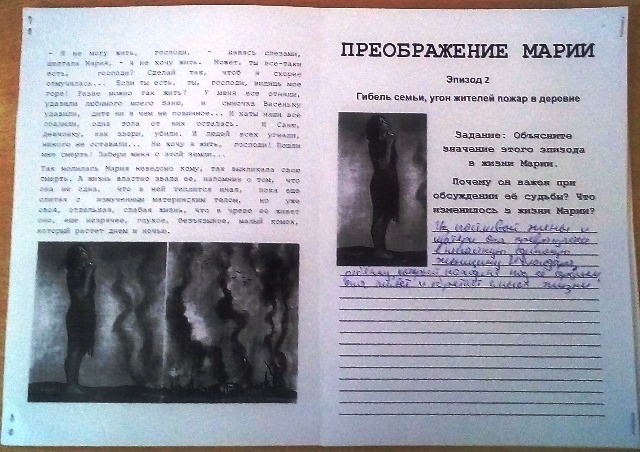 - Я не могу жить, господи, - давясь слезами,
шептала Мария, - я не хочу жить. Может, ты все-таки
есть, господи? Сделай так, чтоб я скорее
отмучилась... Если ты есть, ты, господи, видишь мое
горе! Разве можно так жить? У меня все отняли,
удавили любимого моего Ваню, и сыночка Васеньку
удавили, дитя ни в чем не повинное... И хаты наши все
попалили, одна зола от них осталась. И Саню,
девчонку, как звери, убили. И людей всех угнали,
никого не оставили... Не хочу я жить, господи! Пошли
мне смерть! Забери меня с этой земли...
Так молилась Мария неведомо кому, так выкликала свою
смерть. А жизнь властно звала ее, напомнив о том, что
она не одна, что в ней теплится иная, пока еще
слитая с измученным материнским телом, но уже
своя, отдельная, слабая жизнь, что в чреве ее живет
оно, еще незрячее, глухое, безъязыкое, малый комок,
который растет днем и ночью.
ПРЕОБРАЖЕНИЕ МАРИИ
Эпизод 2
Гибель семьи, угон жителей пожар в деревне
Задание: Объясните
значение этого эпизода
в жизни Марии.
Почему он важен при
обсуждении её судьбы? Что
изменилось в жизни Марии?
Из счастливой жены и
матери она превратилась
в несчастную одинокую
женщину и благодаря
ребёнку который находит под её сердцем
она живёт и обретает смысл жизни